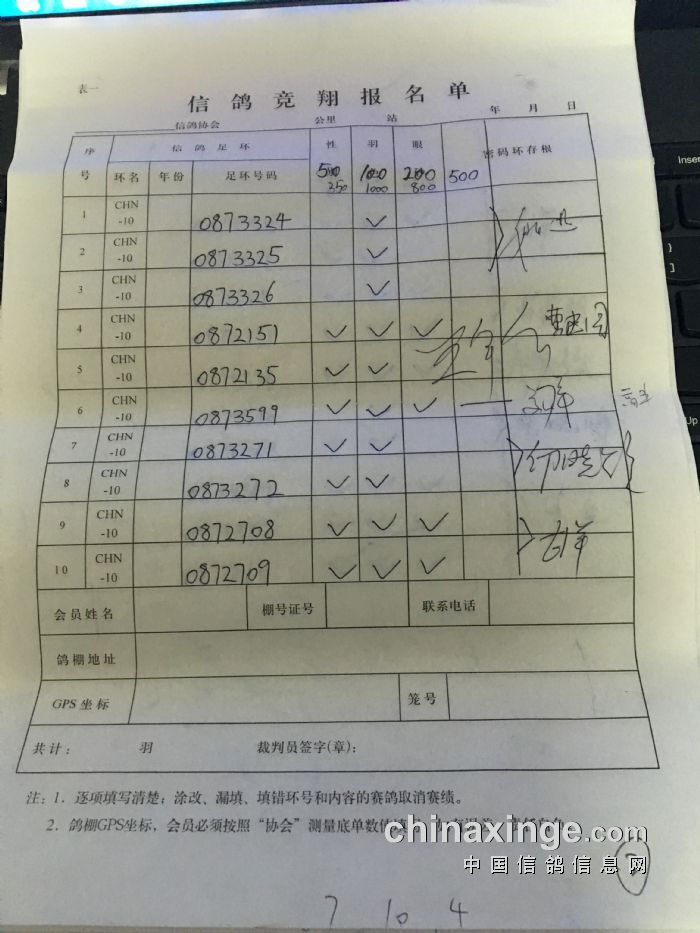 表一
信鸽竞翔报名单
信鸽协会 公里 站 年 月 日
序号 信鸽足环 性 羽 眼 密码环存根
环名 年份 足环号码 250 1000 800 500
1 CHN-10 0873324 ✓
2 CHN-10 0873325 ✓
3 CHN-10 0873326 ✓
4 CHN-10 0872151 ✓ ✓ ✓
5 CHN-10 0872135 ✓ ✓
6 CHN-10 0873599 ✓ ✓ ✓
7 CHN-10 0873271 ✓ ✓
8 CHN-10 0873272 ✓ ✓
9 CHN-10 0872708 ✓ ✓ ✓
10 CHN-10 0872709 ✓ ✓ ✓
会员姓名 棚号证号 联系电话
鸽棚地址
GPS坐标 笼号
共计： 羽 裁判员签字(章)：
注：1．逐项填写清楚；涂改、漏填、填错环号和内容的赛鸽取消赛绩。
2．鸽棚GPS坐标，会员必须按照“协会”测量底单数
chinaxinge.com
中国信鸽信息网
7 10 4
Insert
Up